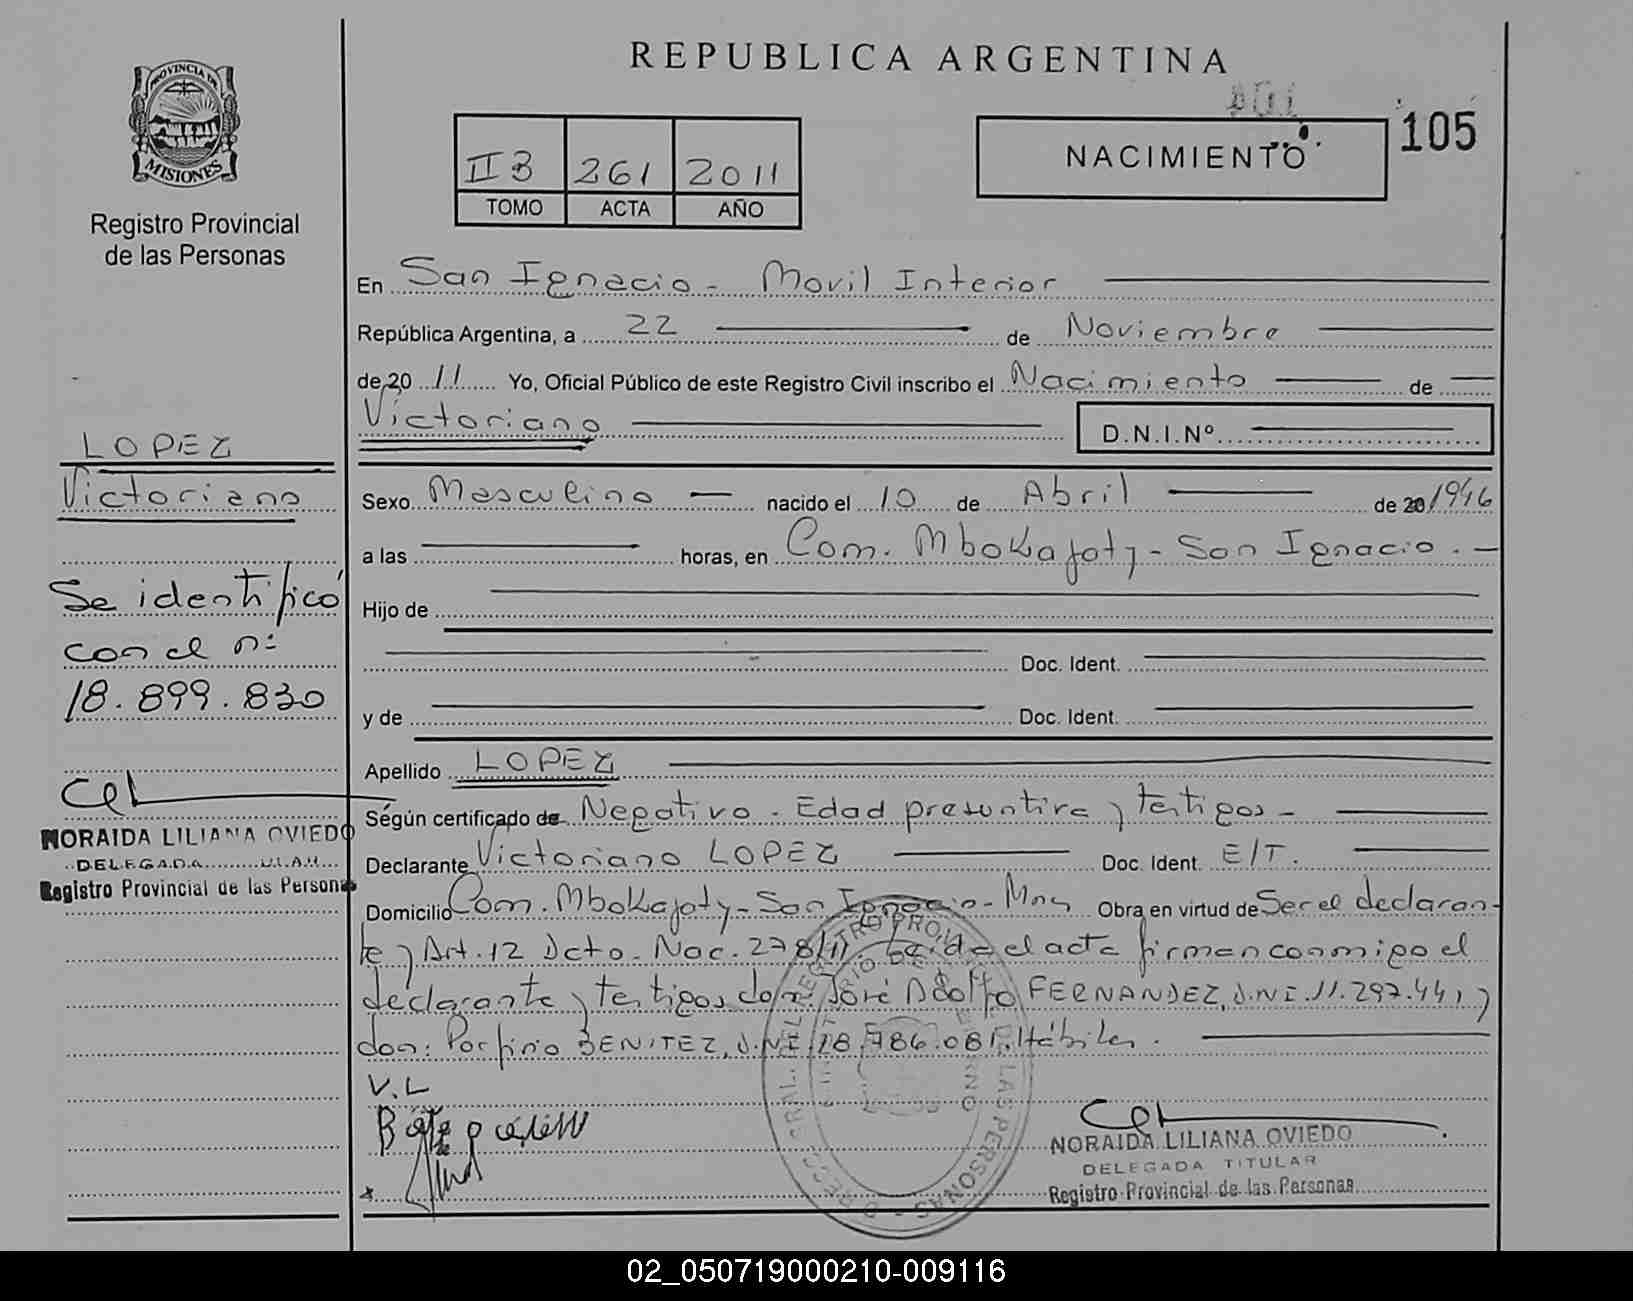 REPUBLICA ARGENTINA
PROVINCIA DE
MISIONES
Registro Provincial
de las Personas
II B 261 2011
TOMO ACTA AÑO
NACIMIENTO
105
En San Ignacio - Movil Interior
República Argentina, a 22 de Noviembre
de 20 11 Yo, Oficial Público de este Registro Civil inscribo el Nacimiento de
Victoriano
D.N.I.Nº
LOPEZ
Victoriano
Se identificó
con el nº
18.899.830
NORAIDA LILIANA OVIEDO
DELEGADA
Registro Provincial de las Personas
Sexo Masculino nacido el 10 de Abril de 20 1946
a las horas, en Com. Mbokajaty - San Ignacio.
Hijo de
Doc. Ident.
y de Doc. Ident.
Apellido LOPEZ
Ségún certificado de Negativo - Edad presuntiva y testigos -
Declarante Victoriano LOPEZ Doc. Ident. E/T.
Domicilio Com. Mbokajaty - San Ignacio - Mnes Obra en virtud de Ser el declaran-
te y Art. 12 Dcto. Nac. 278/11. Leida el acta firman conmigo el
declarante y testigos don: José Adolfo FERNANDEZ, D.N.I. 11.297.441 y
don: Porfirio BENITEZ, D.N.I. 18.786.081. Hábiles.
V.L
NORAIDA LILIANA OVIEDO
DELEGADA TITULAR
Registro Provincial de las Personas
02_050719000210-009116